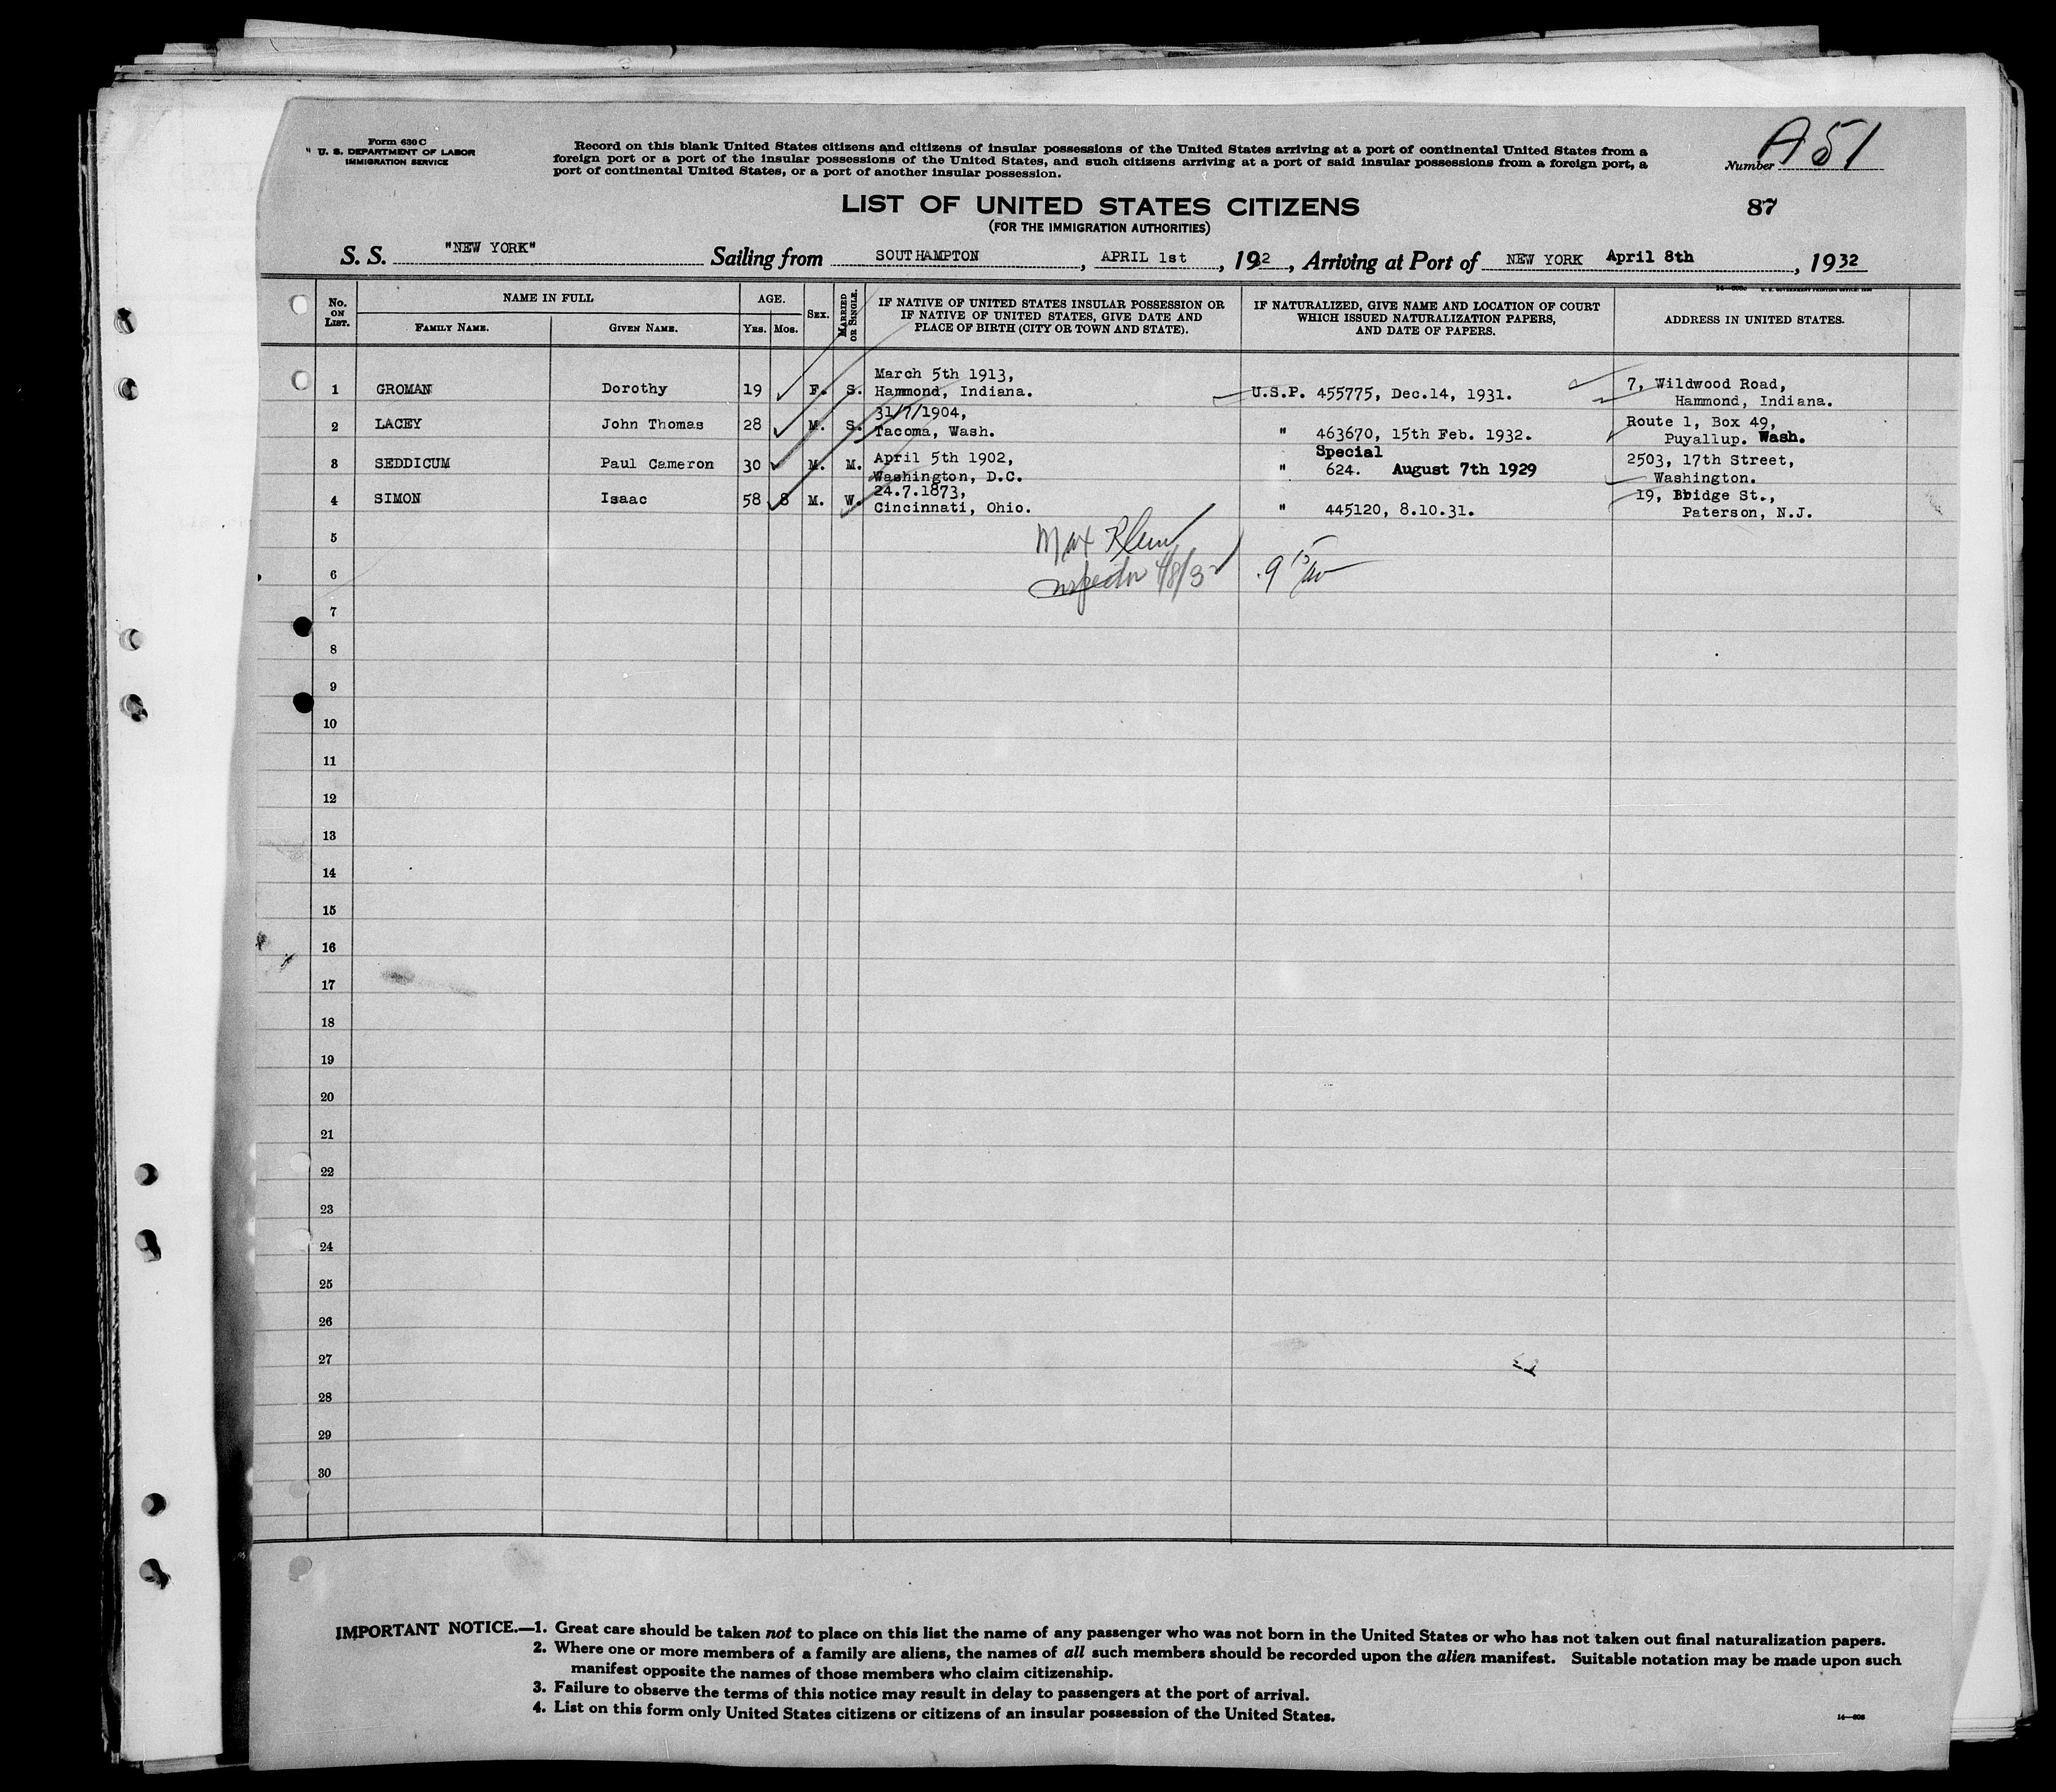 Form 630 C
U. S. DEPARTMENT OF LABOR
IMMIGRATION SERVICE
Record on this blank United States citizens and citizens of insular possessions of the United States arriving at a port of continental United States from a
foreign port or a port of the insular possessions of the United States, and such citizens arriving at a port of said insular possessions from a foreign port, a
port of continental United States, or a port of another insular possession.
Number A 51
LIST OF UNITED STATES CITIZENS
87
(FOR THE IMMIGRATION AUTHORITIES)
S. S. "NEW YORK" Sailing from SOUTHAMPTON, APRIL 1st, 192, Arriving at Port of NEW YORK April 8th, 1932
No. ON LIST. NAME IN FULL FAMILY NAME. GIVEN NAME. AGE. YRS. MOS. SEX. MARRIED OR SINGLE. IF NATIVE OF UNITED STATES INSULAR POSSESSION OR IF NATIVE OF UNITED STATES, GIVE DATE AND PLACE OF BIRTH (CITY OR TOWN AND STATE). IF NATURALIZED, GIVE NAME AND LOCATION OF COURT WHICH ISSUED NATURALIZATION PAPERS, AND DATE OF PAPERS. ADDRESS IN UNITED STATES.
March 5th 1913, 7, Wildwood Road,
1 GROMAN Dorothy 19 F. S. Hammond, Indiana. U.S.P. 455775, Dec.14, 1931. Hammond, Indiana.
31/7/1904, Route 1, Box 49,
2 LACEY John Thomas 28 M. S. Tacoma, Wash. " 463670, 15th Feb. 1932. Puyallup. Wash.
April 5th 1902, Special 2503, 17th Street,
3 SEDDICUM Paul Cameron 30 M. M. Washington, D.C. " 624. August 7th 1929 Washington.
24.7.1873, 19, Bbidge St.,
4 SIMON Isaac 58 8 M. W. Cincinnati, Ohio. " 445120, 8.10.31. Paterson, N.J.
5 Max Klein
6 Inspector 4/8/32
7
8
9
10
11
12
13
14
15
16
17
18
19
20
21
22
23
24
25
26
27
28
29
30
IMPORTANT NOTICE.—1. Great care should be taken not to place on this list the name of any passenger who was not born in the United States or who has not taken out final naturalization papers.
2. Where one or more members of a family are aliens, the names of all such members should be recorded upon the alien manifest. Suitable notation may be made upon such
manifest opposite the names of those members who claim citizenship.
3. Failure to observe the terms of this notice may result in delay to passengers at the port of arrival.
4. List on this form only United States citizens or citizens of an insular possession of the United States.